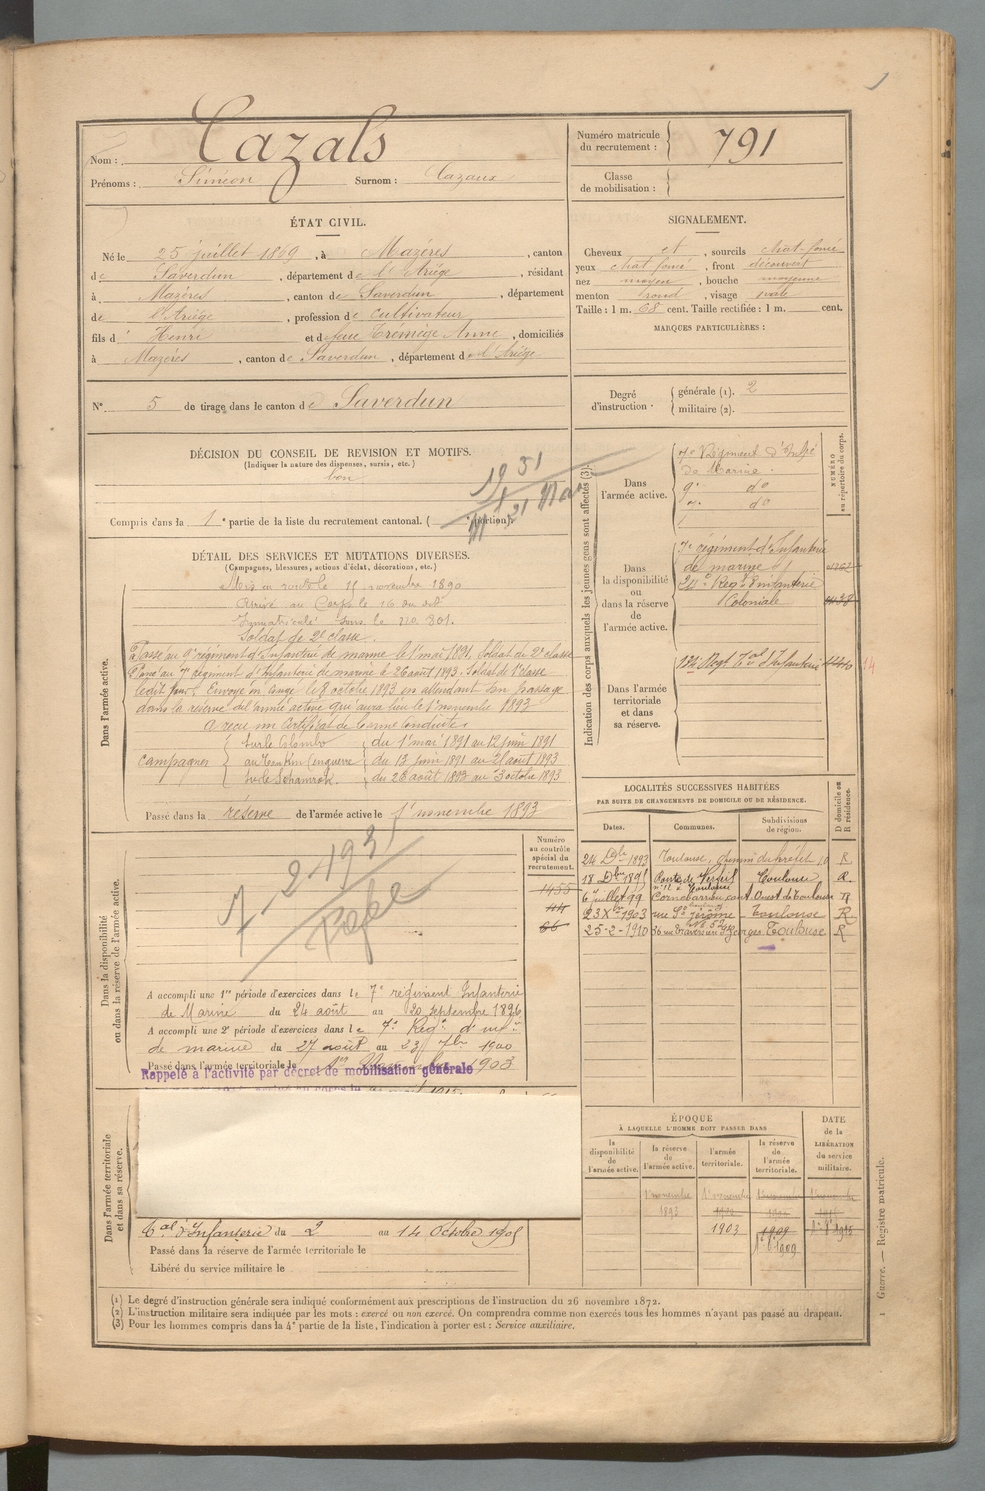 Nom : Cazals
Prénoms : Siméon Surnom : Cazaux
Numéro matricule du recrutement : 791
Classe de mobilisation :
ÉTAT CIVIL.
Né le 25 juillet 1869, à Mazères, canton
de Saverdun, département de l'Ariège, résidant
à Mazères, canton de Saverdun, département
de l'Ariège, profession de cultivateur
fils d' Henri et d feue Trémège Anne, domiciliés
à Mazères, canton de Saverdun, département de l'Ariège
N° 5 de tirage dans le canton de Saverdun
SIGNALEMENT.
Cheveux et, sourcils chat-foncé
yeux chat foncé, front découvert
nez moyen, bouche moyenne
menton rond, visage ovale
Taille : 1 m. 68 cent. Taille rectifiée : 1 m. cent.
MARQUES PARTICULIÈRES :
Degré d'instruction :
générale (1). 2
militaire (2).
DÉCISION DU CONSEIL DE REVISION ET MOTIFS.
(Indiquer la nature des dispenses, sursis, etc.)
bon
Compris dans la 1e partie de la liste du recrutement cantonal. ( portion).
DÉTAIL DES SERVICES ET MUTATIONS DIVERSES.
(Campagnes, blessures, actions d'éclat, décorations, etc.)
Dans l'armée active.
Mis en route le 11 novembre 1890
Arrivé au Corps le 16 du dit
Immatriculé sous le no. 801.
Soldat de 2e classe.
Passé au 9e régiment d'Infanterie de marine le 1er mai 1891. Soldat de 2e classe
Passé au 7e régiment d'Infanterie de marine le 26 août 1893. Soldat de classe
ledit jour. Envoyé en congé le 8 octobre 1893 en attendant son passage
dans la réserve de l'armée active qui aura lieu le 1er novembre 1893
A reçu un Certificat de bonne Conduite
Campagnes
sur le Colombo du 1er mai 1891 au 12 juin 1891
au Tonkin (en guerre) du 13 juin 1891 au 21 août 1893
sur le Schamrok. du 26 août 1893 au 3 octobre 1893
Passé dans la réserve de l'armée active le 1er novembre 1893
Indication des corps auxquels les jeunes gens sont affectés (3).
NUMÉRO au répertoire du corps.
Dans l'armée active.
7e Régiment d'Infie
de Marine.
9e do
7e do
Dans la disponibilité ou dans la réserve de l'armée active.
7e régiment d'Infanterie
de marine
Regt d'Infanterie
Coloniale
Dans l'armée territoriale et dans sa réserve.
134 Regt Tal d'Infanterie 14
LOCALITÉS SUCCESSIVES HABITÉES
PAR SUITE DE CHANGEMENTS DE DOMICILE OU DE RÉSIDENCE.
Dates. Communes. Subdivisions de région. D domicile ou R résidence.
24 Dbre 1893 Toulouse, 10 R
18 Dbre 1895 Route de Toulouse R
6 juillet 99 Cornebarrieu cant. Ouest de Toulouse R
23 Xbre 1903 rue St Jérôme Toulouse R
25-2-1910 36 rue Traversière St Georges Toulouse R
Dans la disponibilité ou dans la réserve de l'armée active.
Numéro au contrôle spécial du recrutement.
1455
66
7-2-193
A accompli une 1re période d'exercices dans le 7e régiment Infanterie
de Marine du 24 août au 20 septembre 1896
A accompli une 2e période d'exercices dans le 7e Régt d'
de marine du 27 août au 23 7bre 1900
Passé dans l'armée territoriale le 1903
Rappelé à l'activité par décret de mobilisation générale
Dans l'armée territoriale et dans sa réserve.
Tal d'Infanterie du 2 au 14 Octobre 1905
Passé dans la réserve de l'armée territoriale le
Libéré du service militaire le
ÉPOQUE
À LAQUELLE L'HOMME DOIT PASSER DANS
la disponibilité de l'armée active.
la réserve de l'armée active.
l'armée territoriale.
la réserve de l'armée territoriale.
DATE de la LIBÉRATION du service militaire.
1 novembre 1893
1903 1909
Guerre. — Registre matricule.
(1) Le degré d'instruction générale sera indiqué conformément aux prescriptions de l'instruction du 26 novembre 1872.
(2) L'instruction militaire sera indiquée par les mots : exercé ou non exercé. On comprendra comme non exercés tous les hommes n'ayant pas passé au drapeau.
(3) Pour les hommes compris dans la 4e partie de la liste, l'indication à porter est : Service auxiliaire.